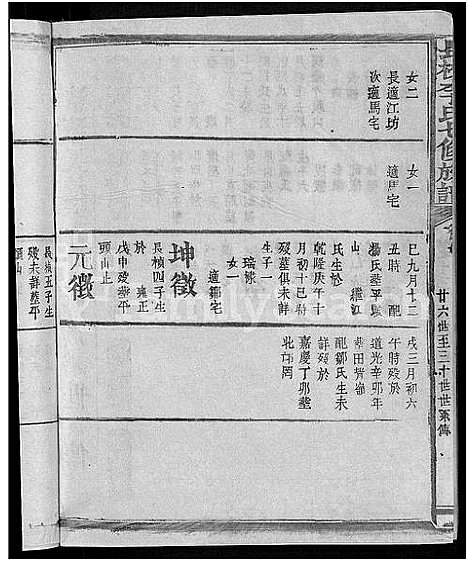 長橋李氏七修族譜
廿六世至三十世世系傳
女二
長適江坊
次適馬宅
女一
適周宅
巳九月十二
丑時 配
楊氏葬平
山 繼江
氏生於
乾隆庚午十
月初十巳時
歿墓俱未詳
生子一
瑞
女一
適鄒宅
坤徵
長楨四子生
於 雍正
戊申歿葬平
頭山止
元徵
戌三月初六
午時歿於
道光辛卯年
葬田背嶺
配鄒氏生未
詳歿於
嘉慶丁卯塟
北坑岡
長楨五子生
歿未詳葬平
頭山